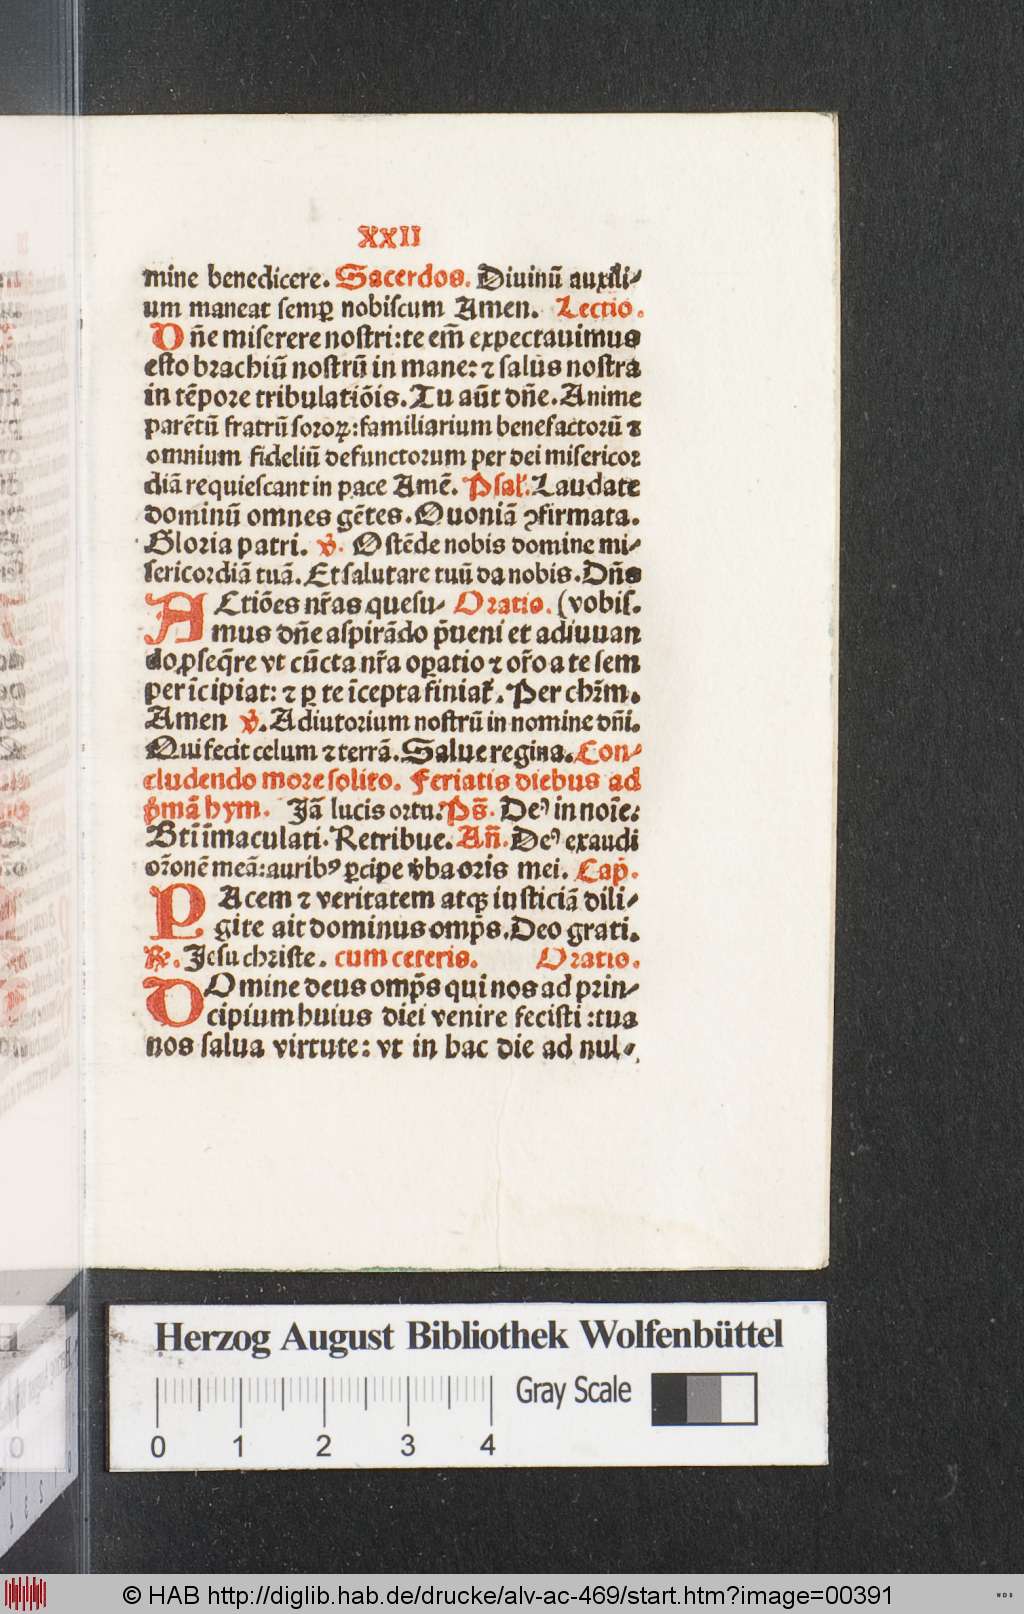 XXII
mine benedicere. Sacerdos. Diuinū auxili⸗
um maneat semꝑ nobiscum Amen. Lectio.
Dn̄e miserere nostri:te em̄ expectauimus
esto brachiū nostrū in mane: ⁊ salus nostra
in tēpore tribulatiōis. Tu aūt dn̄e. Anime
parētū fratrū soroꝝ:familiarium benefactorū ⁊
omnium fideliū defunctorum per dei misericor
diā requiescant in pace Amē. Psal'. Laudate
dominū omnes gētes. Quoniā ꝯfirmata.
Gloria patri. v̄. Ostēde nobis domine mi⸗
sericordiā tuā. Et salutare tuū da nobis. Dn̄s
ACtiōes nr̄as quesu⸗ Oratio. (vobis.
mus dn̄e aspirādo p̄ueni et adiuuan
do ꝓseq̄re vt cūcta nr̄a oꝑatio ⁊ or̄o a te sem
per īcipiat: ⁊ ꝑ te īcepta finiat᷑. Per chr̄m.
Amen v̄. Adiutorium nostrū in nomine dn̄i.
Qui fecit celum ⁊ terrā. Salue regina. Con⸗
cludendo more solito. Feriatis diebus ad
p̄mā hym. Jā lucis ortu. Ps̄. Deꝰ in noīe:
Bti īmaculati. Retribue. An̄. Deꝰ exaudi
or̄onē meā: auribꝰ ꝑcipe v̄ba oris mei. Cap̄.
PAcem ⁊ veritatem atqꝫ iusticiā dili⸗
gite ait dominus omp̄s. Deo grati.
℟. Jesu christe. cum ceteris. Oratio.
DOmine deus omp̄s qui nos ad prin⸗
cipium huius diei venire fecisti :tua
nos salua virtute: vt in hac die ad nul⸗
Herzog August Bibliothek Wolfenbüttel
Gray Scale
0 1 2 3 4
© HAB http://diglib.hab.de/drucke/alv-ac-469/start.htm?image=00391